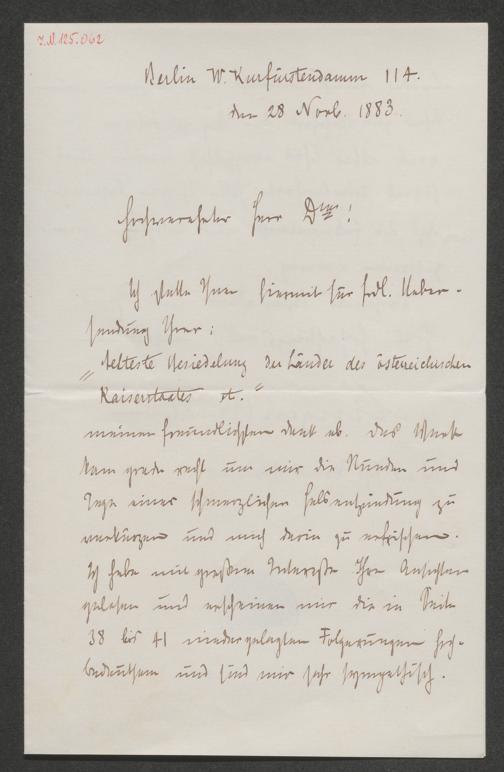 J.N. 125.062
Berlin W. Kurfürstendamm 114.
den 28 Novb. 1883.
Hochverehrter Herr Dr!
Ich statte Ihnen hiermit für frdl. Ueber-
sendung Ihrer:
„Aelteste Besiedelung der Länder des österreichischen
Kaiserstaates etc."
meinen freundlichsten Dank ab. Das Werk
kam grade recht um mir die Stunden und
Tage einer schmerzlichen Halsentzündung zu
verkürzen und mich darin zu erfrischen.
Ich habe mit großem Interesse Ihre Ansichten
gelesen und erscheinen mir die in Seite
38 bis 41 niedergelegten Folgerungen hoch-
bedeutsam und sind mir sehr sympathisch.